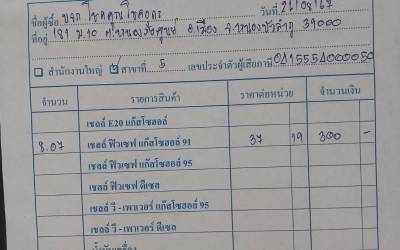 ชื่อผู้ซื้อ บจก โชคคูณโชคอกร วันที่ 26/08/67
ที่อยู่ 181 ม.10 ต.หนองภัยศูนย์ อ.เมือง จ.หนองบัวลำภู 39000
สำนักงานใหญ่ สาขาที่ 5 เลขประจำตัวผู้เสียภาษี 0415554000050
จำนวน รายการสินค้า ราคาต่อหน่วย จำนวนเงิน
เชลล์ E20 แก๊สโซฮอล์
8.07 เชลล์ ฟิวเซฟ แก๊สโซฮอล์ 91 37 19 300 -
เชลล์ ฟิวเซฟ แก๊สโซฮอล์ 95
เชลล์ ฟิวเซฟ ดีเซล
เชลล์ วี - เพาเวอร์ แก๊สโซฮอล์ 95
เชลล์ วี - เพาเวอร์ ดีเซล
น้ำมันเครื่อง